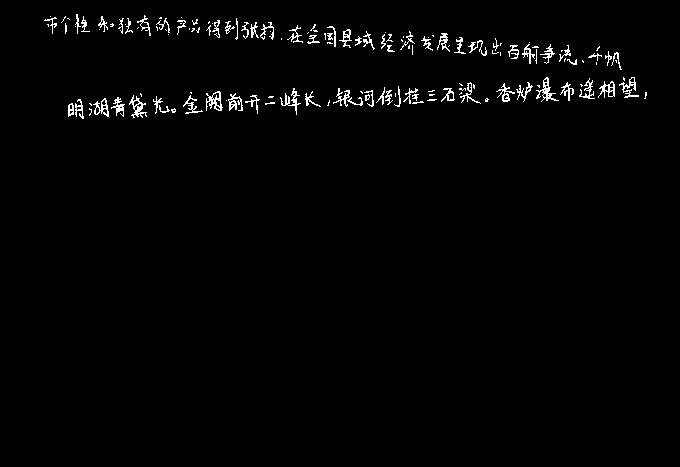 市个性和独有的产品得到张扬.在全国县域经济发展呈现出百舸争流、千帆
明湖青黛光。金阙前开二峰长,银河倒挂三石梁。香炉瀑布遥相望,